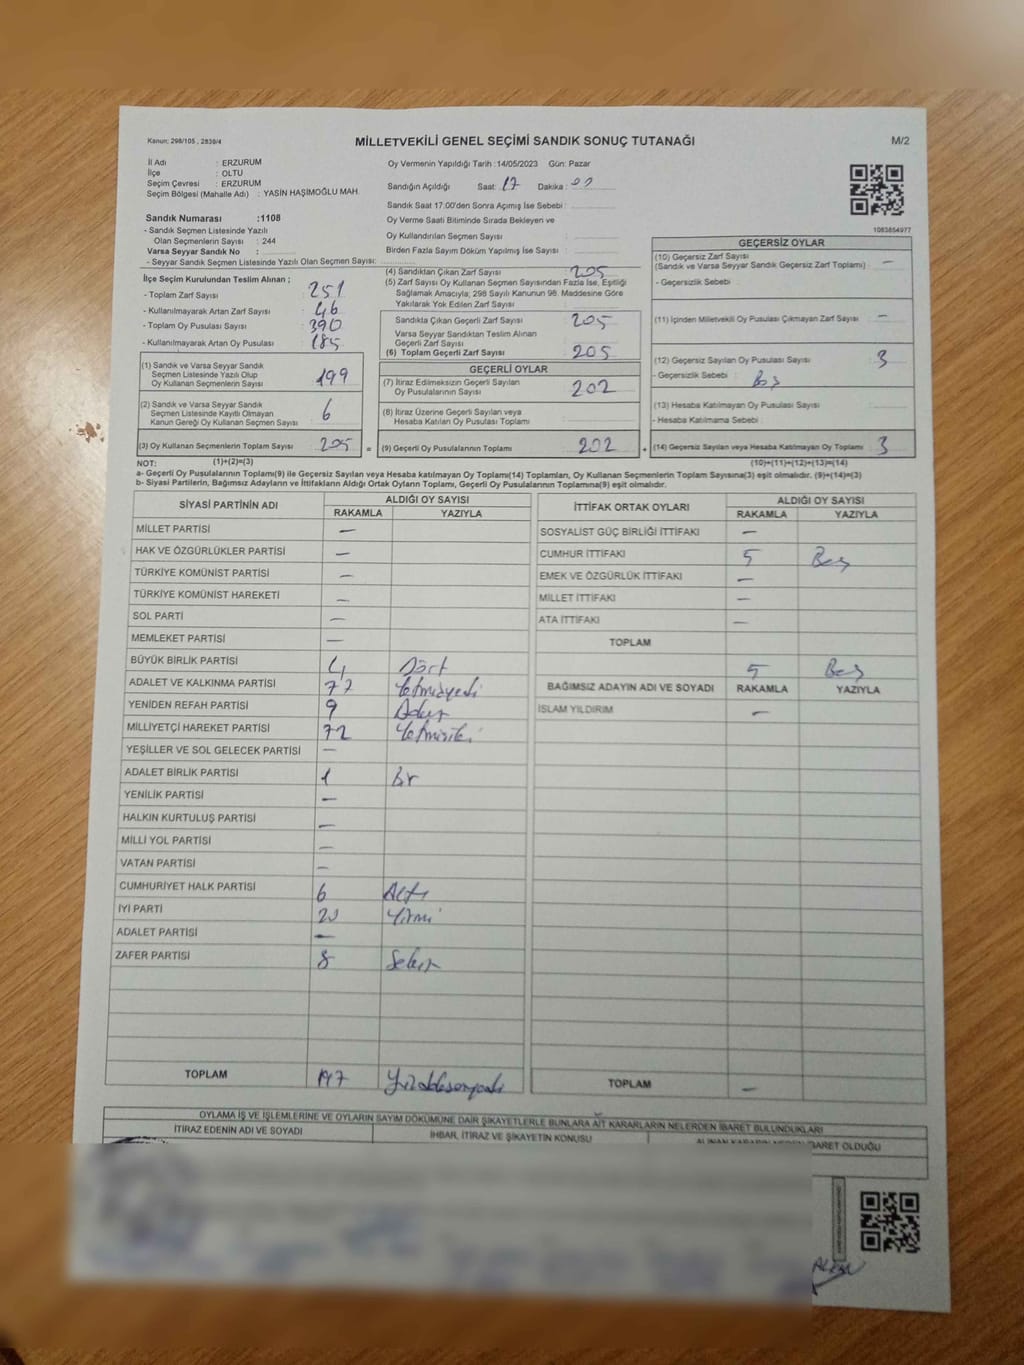 Kanun: 298/105 , 2839/4
MİLLETVEKİLİ GENEL SEÇİMİ SANDIK SONUÇ TUTANAĞI
M/2
İl Adı : ERZURUM
İlçe : OLTU
Seçim Çevresi : ERZURUM
Seçim Bölgesi (Mahalle Adı) : YASİN HAŞİMOĞLU MAH.
Sandık Numarası :1108
- Sandık Seçmen Listesinde Yazılı
Olan Seçmenlerin Sayısı : 244
Varsa Seyyar Sandık No :
- Seyyar Sandık Seçmen Listesinde Yazılı Olan Seçmen Sayısı:
Oy Vermenin Yapıldığı Tarih :14/05/2023 Gün: Pazar
Sandığın Açıldığı Saat: 17 Dakika :
Sandık Saat 17:00'den Sonra Açımış İse Sebebi :
Oy Verme Saati Bitiminde Sırada Bekleyen ve
Oy Kullandırılan Seçmen Sayısı :
Birden Fazla Sayım Döküm Yapılmış İse Sayısı :
1083854977
İlçe Seçim Kurulundan Teslim Alınan ;
- Toplam Zarf Sayısı : 251
- Kullanılmayarak Artan Zarf Sayısı : 46
- Toplam Oy Pusulası Sayısı : 390
- Kullanılmayarak Artan Oy Pusulası : 185
(1) Sandık ve Varsa Seyyar Sandık
Seçmen Listesinde Yazılı Olup
Oy Kullanan Seçmenlerin Sayısı : 199
(2) Sandık ve Varsa Seyyar Sandık
Seçmen Listesinde Kayıtlı Olmayan
Kanun Gereği Oy Kullanan Seçmen Sayısı : 6
(3) Oy Kullanan Seçmenlerin Toplam Sayısı : 205
(4) Sandıktan Çıkan Zarf Sayısı : 205
(5) Zarf Sayısı Oy Kullanan Seçmen Sayısından Fazla İse, Eşitliği
Sağlamak Amacıyla; 298 Sayılı Kanunun 98. Maddesine Göre
Yakılarak Yok Edilen Zarf Sayısı :
Sandıkla Çıkan Geçerli Zarf Sayısı : 205
Varsa Seyyar Sandıktan Teslim Alınan
Geçerli Zarf Sayısı :
(6) Toplam Geçerli Zarf Sayısı : 205
GEÇERLİ OYLAR
(7) İtiraz Edilmeksizin Geçerli Sayılan
Oy Pusulalarının Sayısı : 202
(8) İtiraz Üzerine Geçerli Sayılan veya
Hesaba Katılan Oy Pusulası Toplamı :
= (9) Geçerli Oy Pusulalarının Toplamı : 202
GEÇERSİZ OYLAR
(10) Geçersiz Zarf Sayısı
(Sandık ve Varsa Seyyar Sandık Geçersiz Zarf Toplamı) : —
- Geçersizlik Sebebi :
(11) İçinden Milletvekili Oy Pusulası Çıkmayan Zarf Sayısı : —
(12) Geçersiz Sayılan Oy Pusulası Sayısı : 3
- Geçersizlik Sebebi : Boş
(13) Hesaba Katılmayan Oy Pusulası Sayısı :
- Hesaba Katılmama Sebebi :
+ (14) Geçersiz Sayılan veya Hesaba Katılmayan Oy Toplamı : 3
NOT: (1)+(2)=(3) (10)+(11)+(12)+(13)=(14)
a- Geçerli Oy Pusulalarının Toplamı(9) ile Geçersiz Sayılan veya Hesaba katılmayan Oy Toplamı(14) Toplamları, Oy Kullanan Seçmenlerin Toplam Sayısına(3) eşit olmalıdır. (9)+(14)=(3)
b- Siyasi Partilerin, Bağımsız Adayların ve İttifakların Aldığı Ortak Oyların Toplamı, Geçerli Oy Pusulalarının Toplamına(9) eşit olmalıdır.
SİYASİ PARTİNİN ADI ALDIĞI OY SAYISI
RAKAMLA YAZIYLA
MİLLET PARTİSİ —
HAK VE ÖZGÜRLÜKLER PARTİSİ —
TÜRKİYE KOMÜNİST PARTİSİ —
TÜRKİYE KOMÜNİST HAREKETİ —
SOL PARTİ —
MEMLEKET PARTİSİ —
BÜYÜK BİRLİK PARTİSİ 4 Dört
ADALET VE KALKINMA PARTİSİ 77 Yetmişyedi
YENİDEN REFAH PARTİSİ 9
MİLLİYETÇİ HAREKET PARTİSİ 72 Yetmişiki
YEŞİLLER VE SOL GELECEK PARTİSİ —
ADALET BİRLİK PARTİSİ 1 Bir
YENİLİK PARTİSİ —
HALKIN KURTULUŞ PARTİSİ —
MİLLİ YOL PARTİSİ —
VATAN PARTİSİ —
CUMHURİYET HALK PARTİSİ 6 Altı
İYİ PARTİ 20 Yirmi
ADALET PARTİSİ —
ZAFER PARTİSİ 8 Sekiz
TOPLAM 197 Yüzdoksanyedi
İTTİFAK ORTAK OYLARI ALDIĞI OY SAYISI
RAKAMLA YAZIYLA
SOSYALİST GÜÇ BİRLİĞİ İTTİFAKI —
CUMHUR İTTİFAKI 5 Beş
EMEK VE ÖZGÜRLÜK İTTİFAKI —
MİLLET İTTİFAKI —
ATA İTTİFAKI —
TOPLAM
5 Beş
BAĞIMSIZ ADAYIN ADI VE SOYADI RAKAMLA YAZIYLA
İSLAM YILDIRIM —
TOPLAM —
OYLAMA İŞ VE İŞLEMLERİNE VE OYLARIN SAYIM DÖKÜMÜNE DAİR ŞİKAYETLERLE BUNLARA AİT KARARLARIN NELERDEN İBARET BULUNDUKLARI
İTİRAZ EDENİN ADI VE SOYADI İHBAR, İTİRAZ VE ŞİKAYETİN KONUSU ALINAN KARARIN NEDEN İBARET OLDUĞU